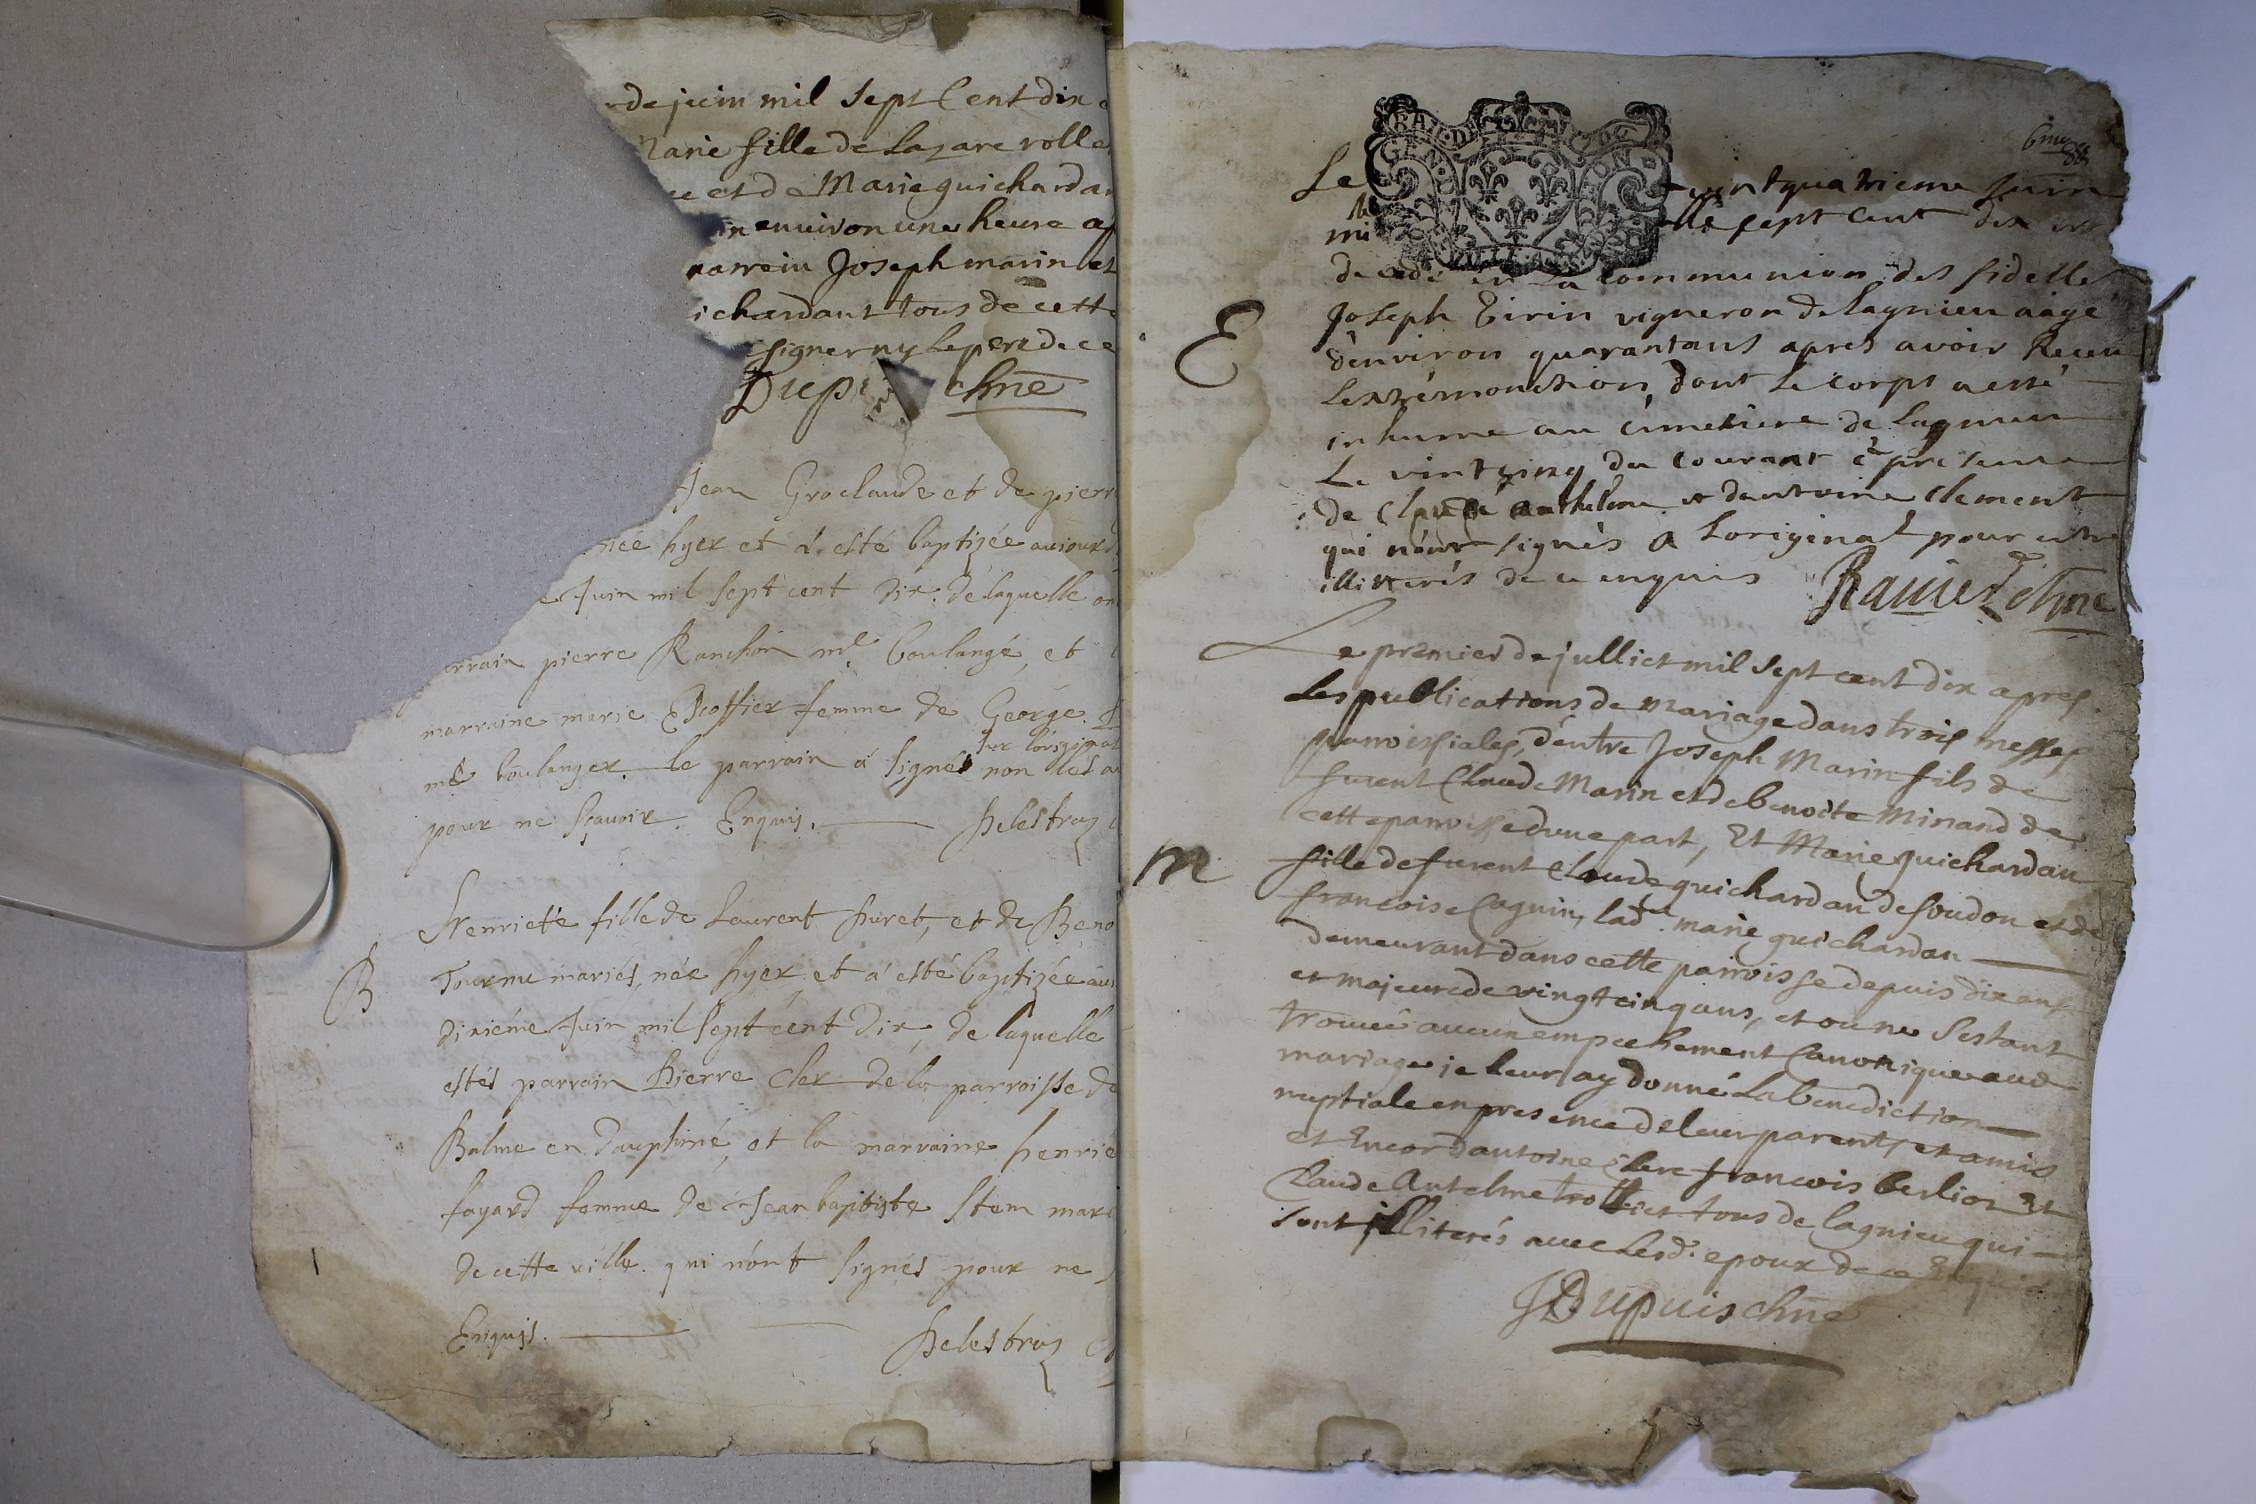 de juin mil sept Cent dix
Marie fille de Lazare rolle
et de Marie guichardan
environ une heure
parrein Joseph marin et
ichardant tous de cette
signer ny le pere de ce
Dupui chne
Jean Groclaude et de pierr
née hyer et a esté baptizée aujour
Juin mil sept cent Dix. de laquelle on
arrain pierre Ranchon md. boulangé, et
marraine marie Escoffier femme de George.
sur loriginal
md boulanger. le parrain a signés non les
pour ne sçavoir. Enquis. Delestraz
B
Henriete fille de Laurent huret, et de Beno
Tournu mariés, née hyer et a esté baptizée au
dixiéme Juin mil sept cent Dix, de laquelle
estés parrain Pierre Cler de la parroisse de
Balme en Dauphiné, et la marraine henrie
fayard femme de Jean baptiste Stem mar
de cette ville. qui n'ont signés pour ne
Enquis. Delestraz
6me
GEN
Le vintquatrieme Juin
mi sept cent dix
decedé en La communion des fidelles
E
Joseph Tirin vigneron de Lagnieu aagé
d'environ quarantans apres avoir Receu
Lextrémonction, dont Le corps a esté
inhume au cimetiere de Lagnieu
Le vintcinq du courant presence
de Claude et dantoine Clement
qui n'ont signés a Loriginal pour estre
illitterés de ce enquis Ravier chne
Le premier de julliet mil sept cent dix apres
Les publications de mariage dans trois messes
parroissiales, d'entre Joseph Marin fils de
furent Claude Marin et de benoite Minand de
cette parroisse dune part, Et Marie guichardan
M
fille de furent Claude guichardan de soudon et de
francoise Cagnin, lad. marie guichardan
demeurant dans cette parroisse depuis dix ans
et majeure de vingtcinq ans, et ou ne sestant
trouvé aucun empechement Canonique aud
mariage je leur ay donné La benediction
nuptiale en presence de leur parents et amis
et Encor dantoine clerc francois berlion Et
Claude Antelme trolliet tous de lagnieu qui
sont illiterés avec lesd. epoux de ce Enquis
JDupuis chne